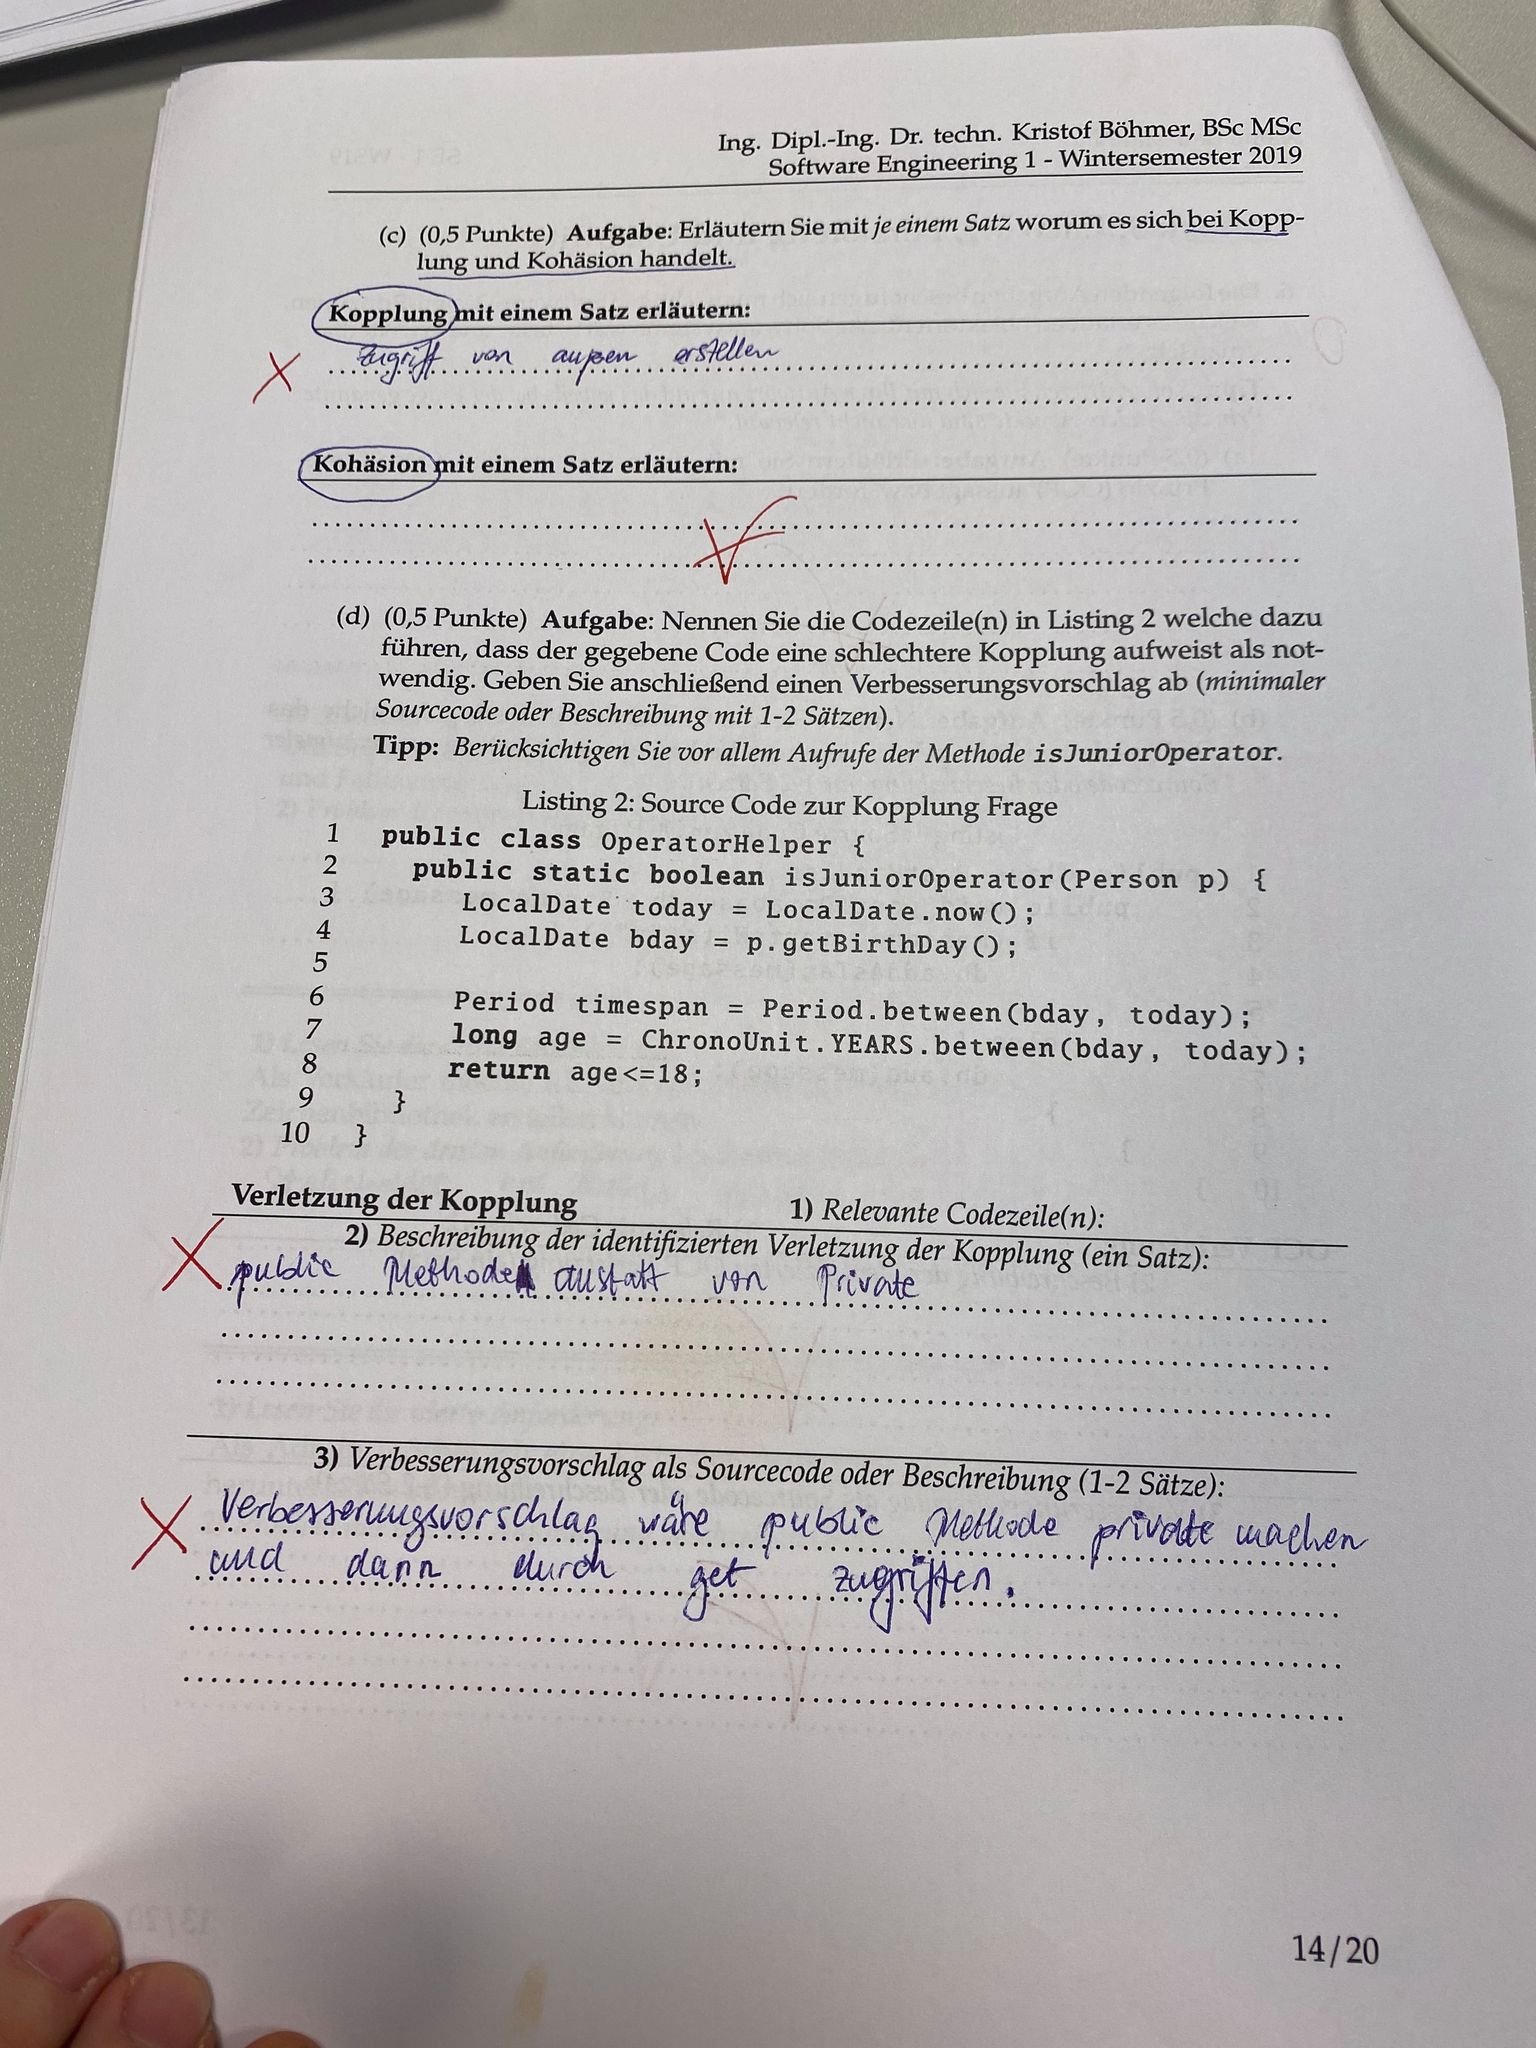 Ing. Dipl.-Ing. Dr. techn. Kristof Böhmer, BSc MSc
Software Engineering 1 - Wintersemester 2019
(c) (0,5 Punkte) Aufgabe: Erläutern Sie mit je einem Satz worum es sich bei Kopp-
lung und Kohäsion handelt.
Kopplung mit einem Satz erläutern:
Zugriff von außen erstellen
Kohäsion mit einem Satz erläutern:
(d) (0,5 Punkte) Aufgabe: Nennen Sie die Codezeile(n) in Listing 2 welche dazu
führen, dass der gegebene Code eine schlechtere Kopplung aufweist als not-
wendig. Geben Sie anschließend einen Verbesserungsvorschlag ab (minimaler
Sourcecode oder Beschreibung mit 1-2 Sätzen).
Tipp: Berücksichtigen Sie vor allem Aufrufe der Methode isJuniorOperator.
Listing 2: Source Code zur Kopplung Frage
1 public class OperatorHelper {
2 public static boolean isJuniorOperator(Person p) {
3 LocalDate today = LocalDate.now();
4 LocalDate bday = p.getBirthDay();
5
6 Period timespan = Period.between(bday, today);
7 long age = ChronoUnit.YEARS.between(bday, today);
8 return age<=18;
9 }
10 }
Verletzung der Kopplung 1) Relevante Codezeile(n):
2) Beschreibung der identifizierten Verletzung der Kopplung (ein Satz):
public Methode anstatt von Private
3) Verbesserungsvorschlag als Sourcecode oder Beschreibung (1-2 Sätze):
Verbesserungsvorschlag wäre public Methode private machen
und dann durch get zugriffen.
14/20